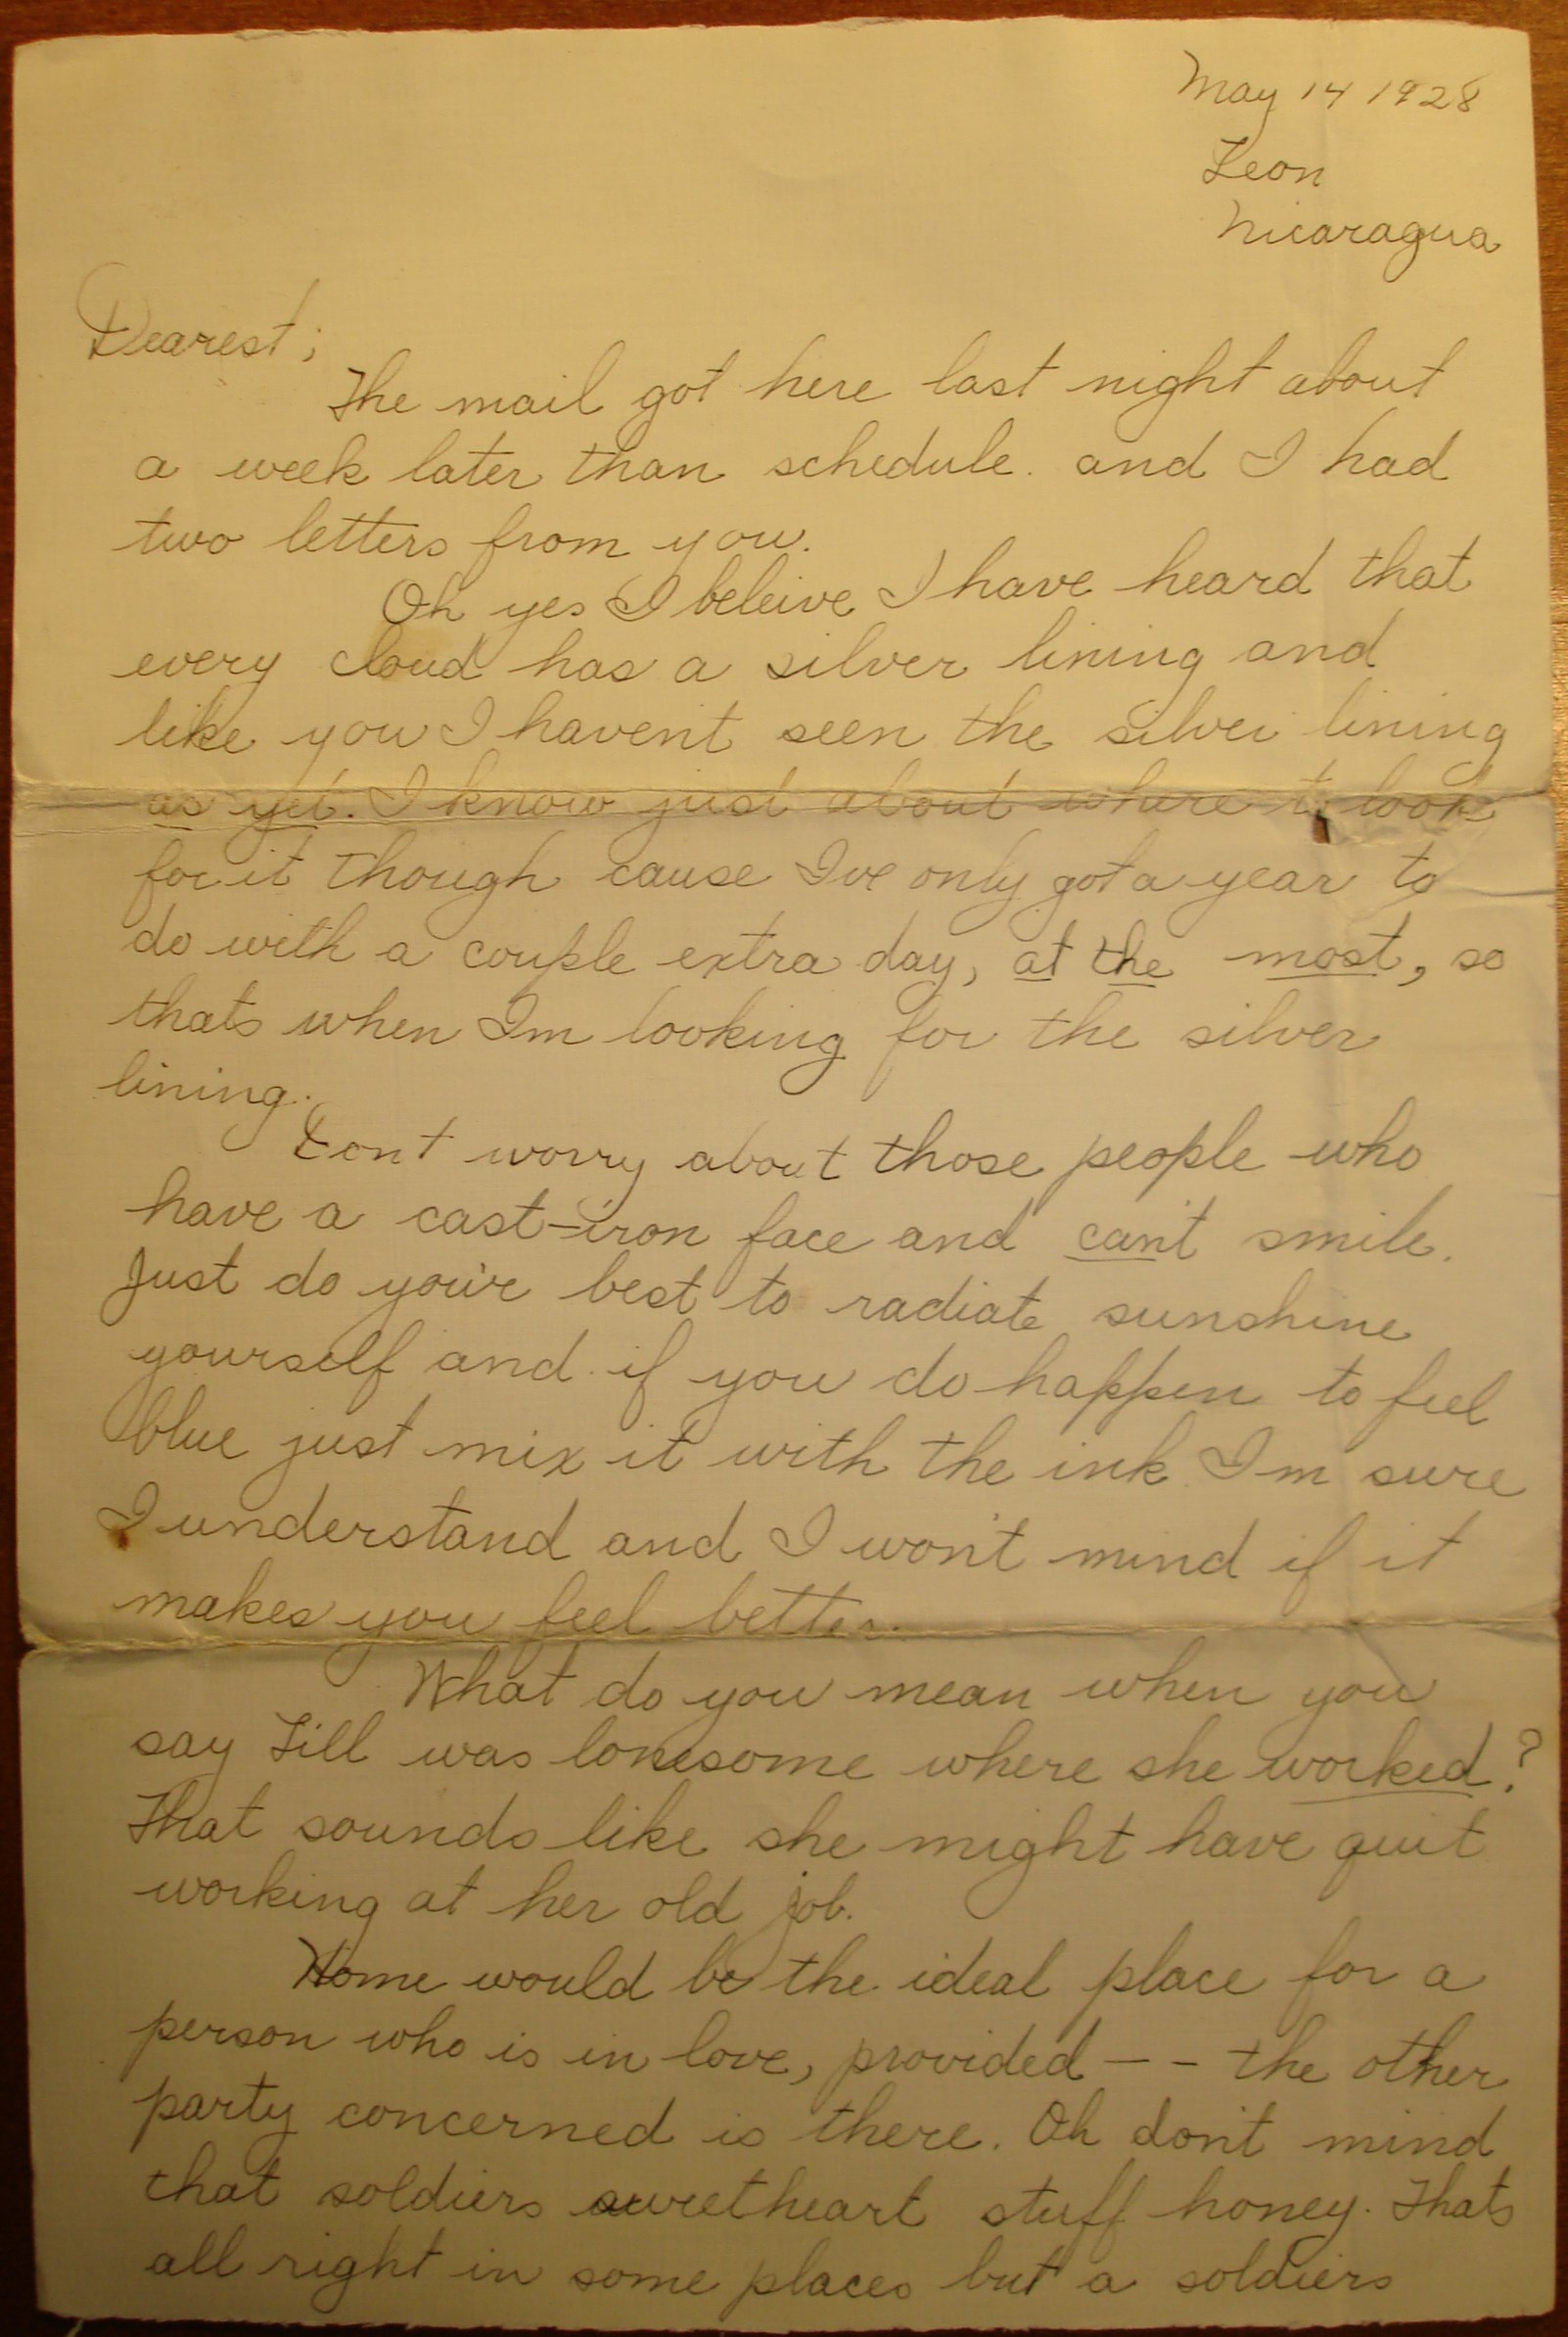 May 14 1928
Leon
Nicaragua
Dearest;
The mail got here last night about
a week later than schedule. and I had
two letters from you.
Oh yes I beleive I have heard that
every cloud has a silver lining and
like you I haven't seen the silver lining
as yet. I know just about where to look
for it though cause Ive only got a year to
do with a couple extra day, at the most, so
thats when Im looking for the silver
lining.
Dont worry about those people who
have a cast-iron face and can't smile.
Just do you're best to radiate sunshine
yourself and if you do happen to feel
blue just mix it with the ink I'm sure
I understand and I won't mind if it
makes you feel better.
What do you mean when you
say Lill was lonesome where she worked?
That sounds like she might have quit
working at her old job.
Home would be the ideal place for a
person who is in love, provided -- the other
party concerned is there. Oh don't mind
that soldiers sweetheart stuff honey. Thats
all right in some places but a soldiers